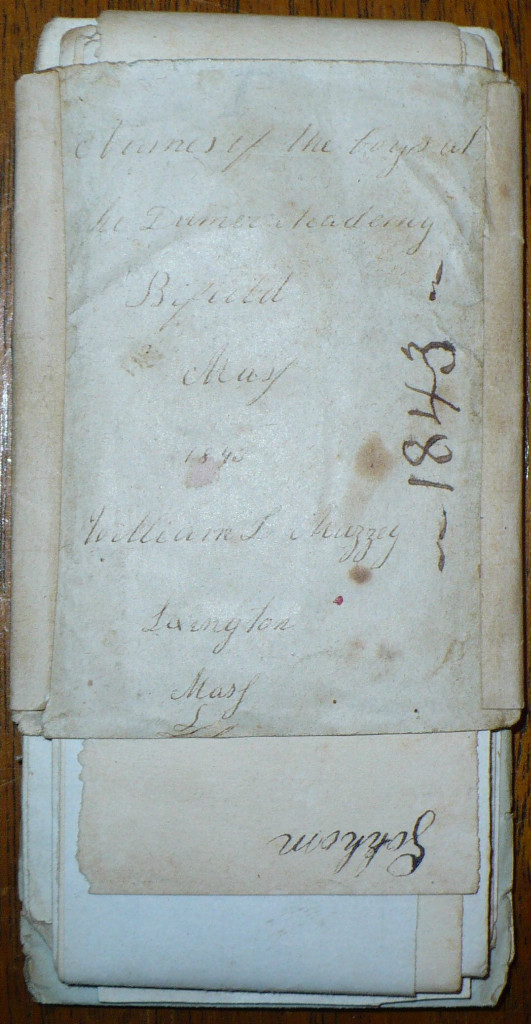 Names of the boys at
the Dumer Academy
Bifield
Mass
1843
William L Muzzey
Lexington
Mass
L
~ 1843 ~